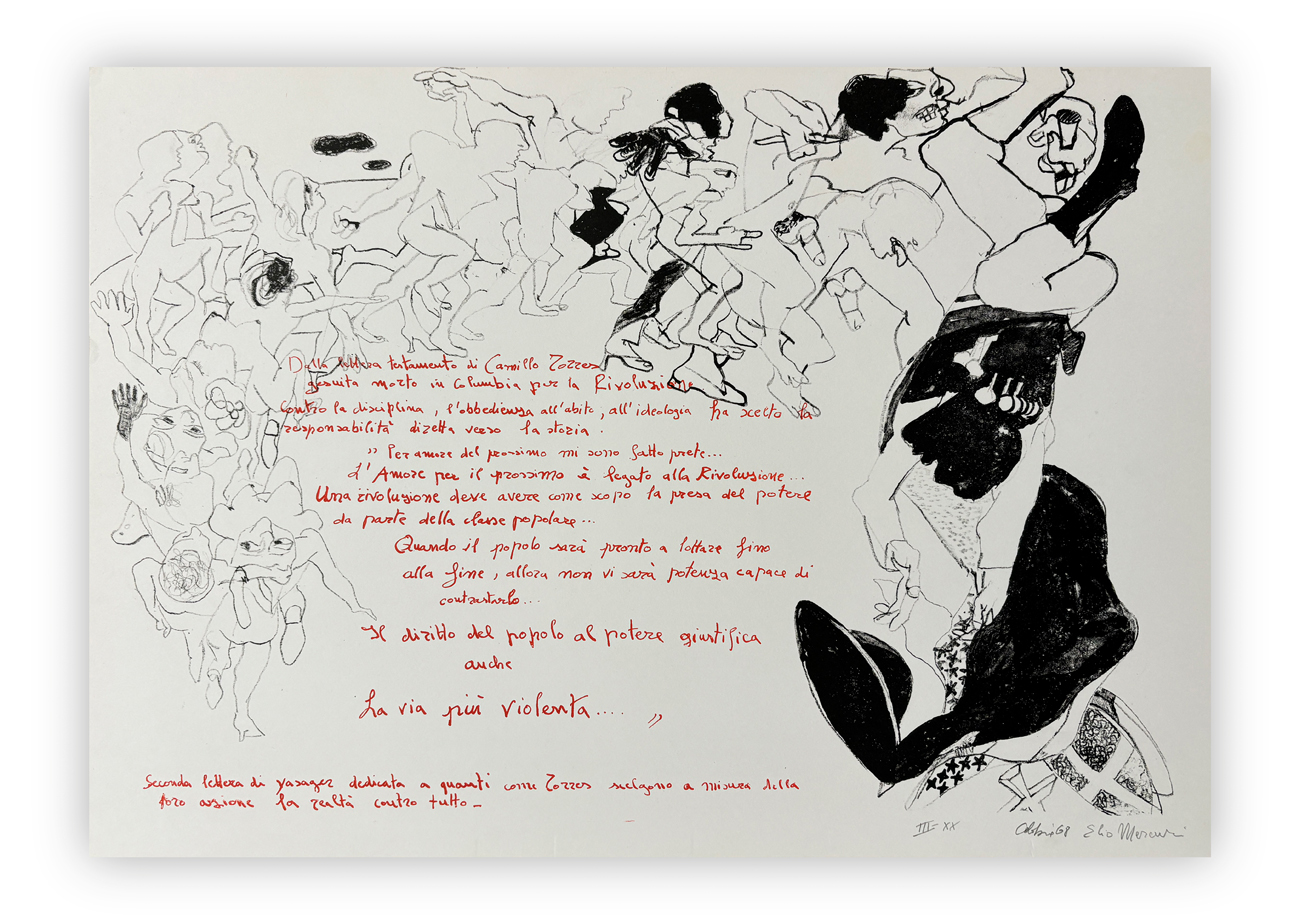 Dalla lettera testamento di Camillo Torres
gesuita morto in Columbia per la Rivoluzione
contro la disciplina, l'obbedienza all'abito, all'ideologia ha scelto la
responsabilità diretta verso la storia.
" Per amore del prossimo mi sono fatto prete...
L'Amore per il prossimo è legato alla Rivoluzione...
Una rivoluzione deve avere come scopo la presa del potere
da parte della classe popolare...
Quando il popolo sarà pronto a lottare fino
alla fine, allora non vi sarà potenza capace di
contrastarlo...
Il diritto del popolo al potere giustifica
anche
La via più violenta.... "
Seconda lettera di yasager dedicata a quanti come Torres scelgono a misura della
loro azione la realtà contro tutto _
III-XX
68 Elio Mercuri